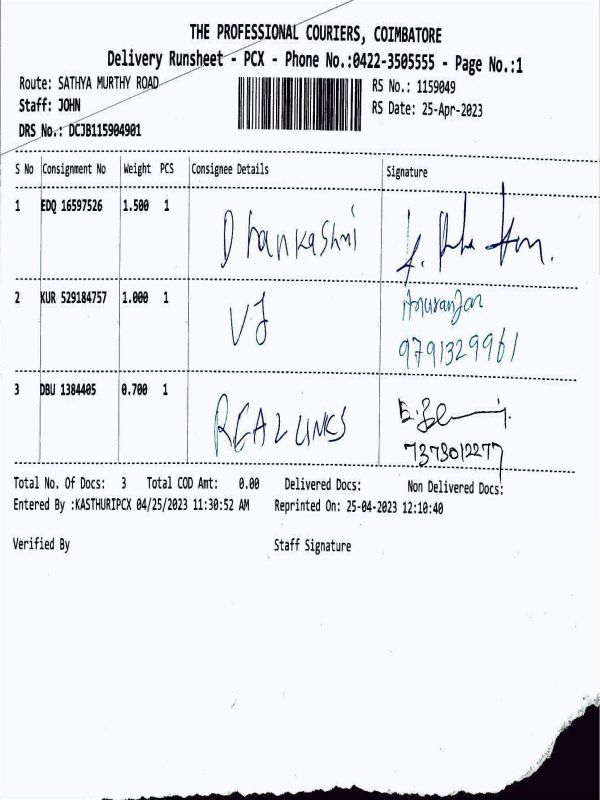 THE PROFESSIONAL COURIERS, COIMBATORE
Delivery Runsheet - PCX - Phone No.:0422-3505555 - Page No.:1
Route: SATHYA MURTHY ROAD
RS No.: 1159049
Staff: JOHN
RS Date: 25-Apr-2023
DRS No.: DCJB115904901
S No Consignment No Weight PCS Consignee Details Signature
1 EDQ 16597526 1.500 1
Dhankashmi
2 KUR 529184757 1.000 1 Anuranjan
VJ
9791329961
3 DBU 1384405 0.700 1
REAL LINKS
7373012277
Total No. Of Docs: 3 Total COD Amt: 0.00 Delivered Docs: Non Delivered Docs:
Entered By :KASTHURIPCX 04/25/2023 11:30:52 AM Reprinted On: 25-04-2023 12:10:40
Verified By Staff Signature